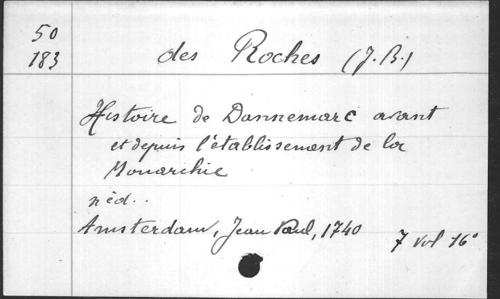 50
183
des Roches (J.B.)
Histoire de Dannemarc avant
et depuis l'établissement de la
Monarchie
néd..
Amsterdam, Jean Paul, 1740
7 vol 16°